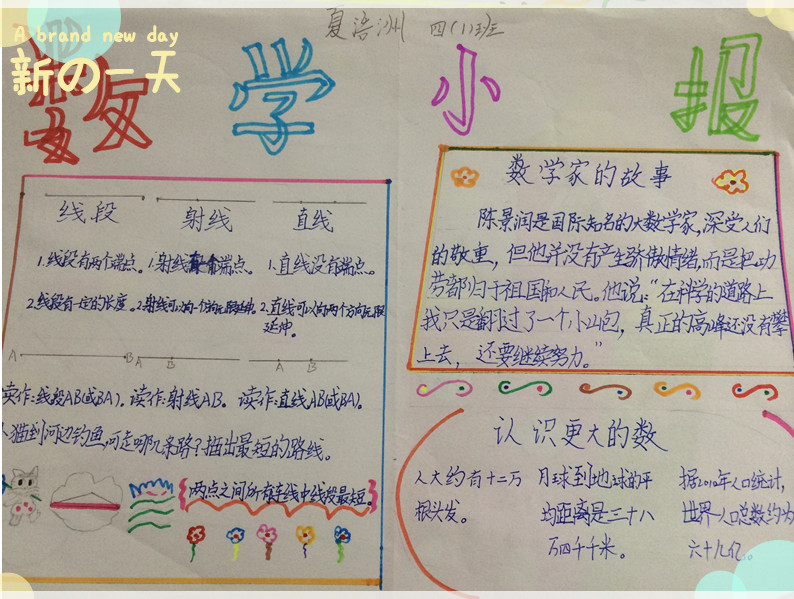 A brand new day
新の一天
夏语洲 四(1)班
数学小报
线段 射线 直线
1.线段有两个端点。 1.射线有一个端点。 1.直线没有端点。
2.线段有一定的长度。 2.射线可以向一个方向无限延伸。 2.直线可以向两个方向无限
延伸。
A B A B A B
读作:线段AB(或BA)。 读作:射线AB。 读作:直线AB(或BA)。
猫到河边钓鱼,可走哪几条路?描出最短的路线。
两点之间所有连线中线段最短。
数学家的故事
陈景润是国际知名的大数学家,深受人们
的敬重,但他并没有产生骄傲情绪,而是把功
劳都归于祖国和人民。他说:“在科学的道路上
我只是翻过了一个小山包,真正的高峰还没有攀
上去,还要继续努力。”
认识更大的数
人大约有十二万
根头发。
月球到地球的平
均距离是三十八
万四千千米。
据2010年人口统计,
世界人口总数约为
六十九亿。